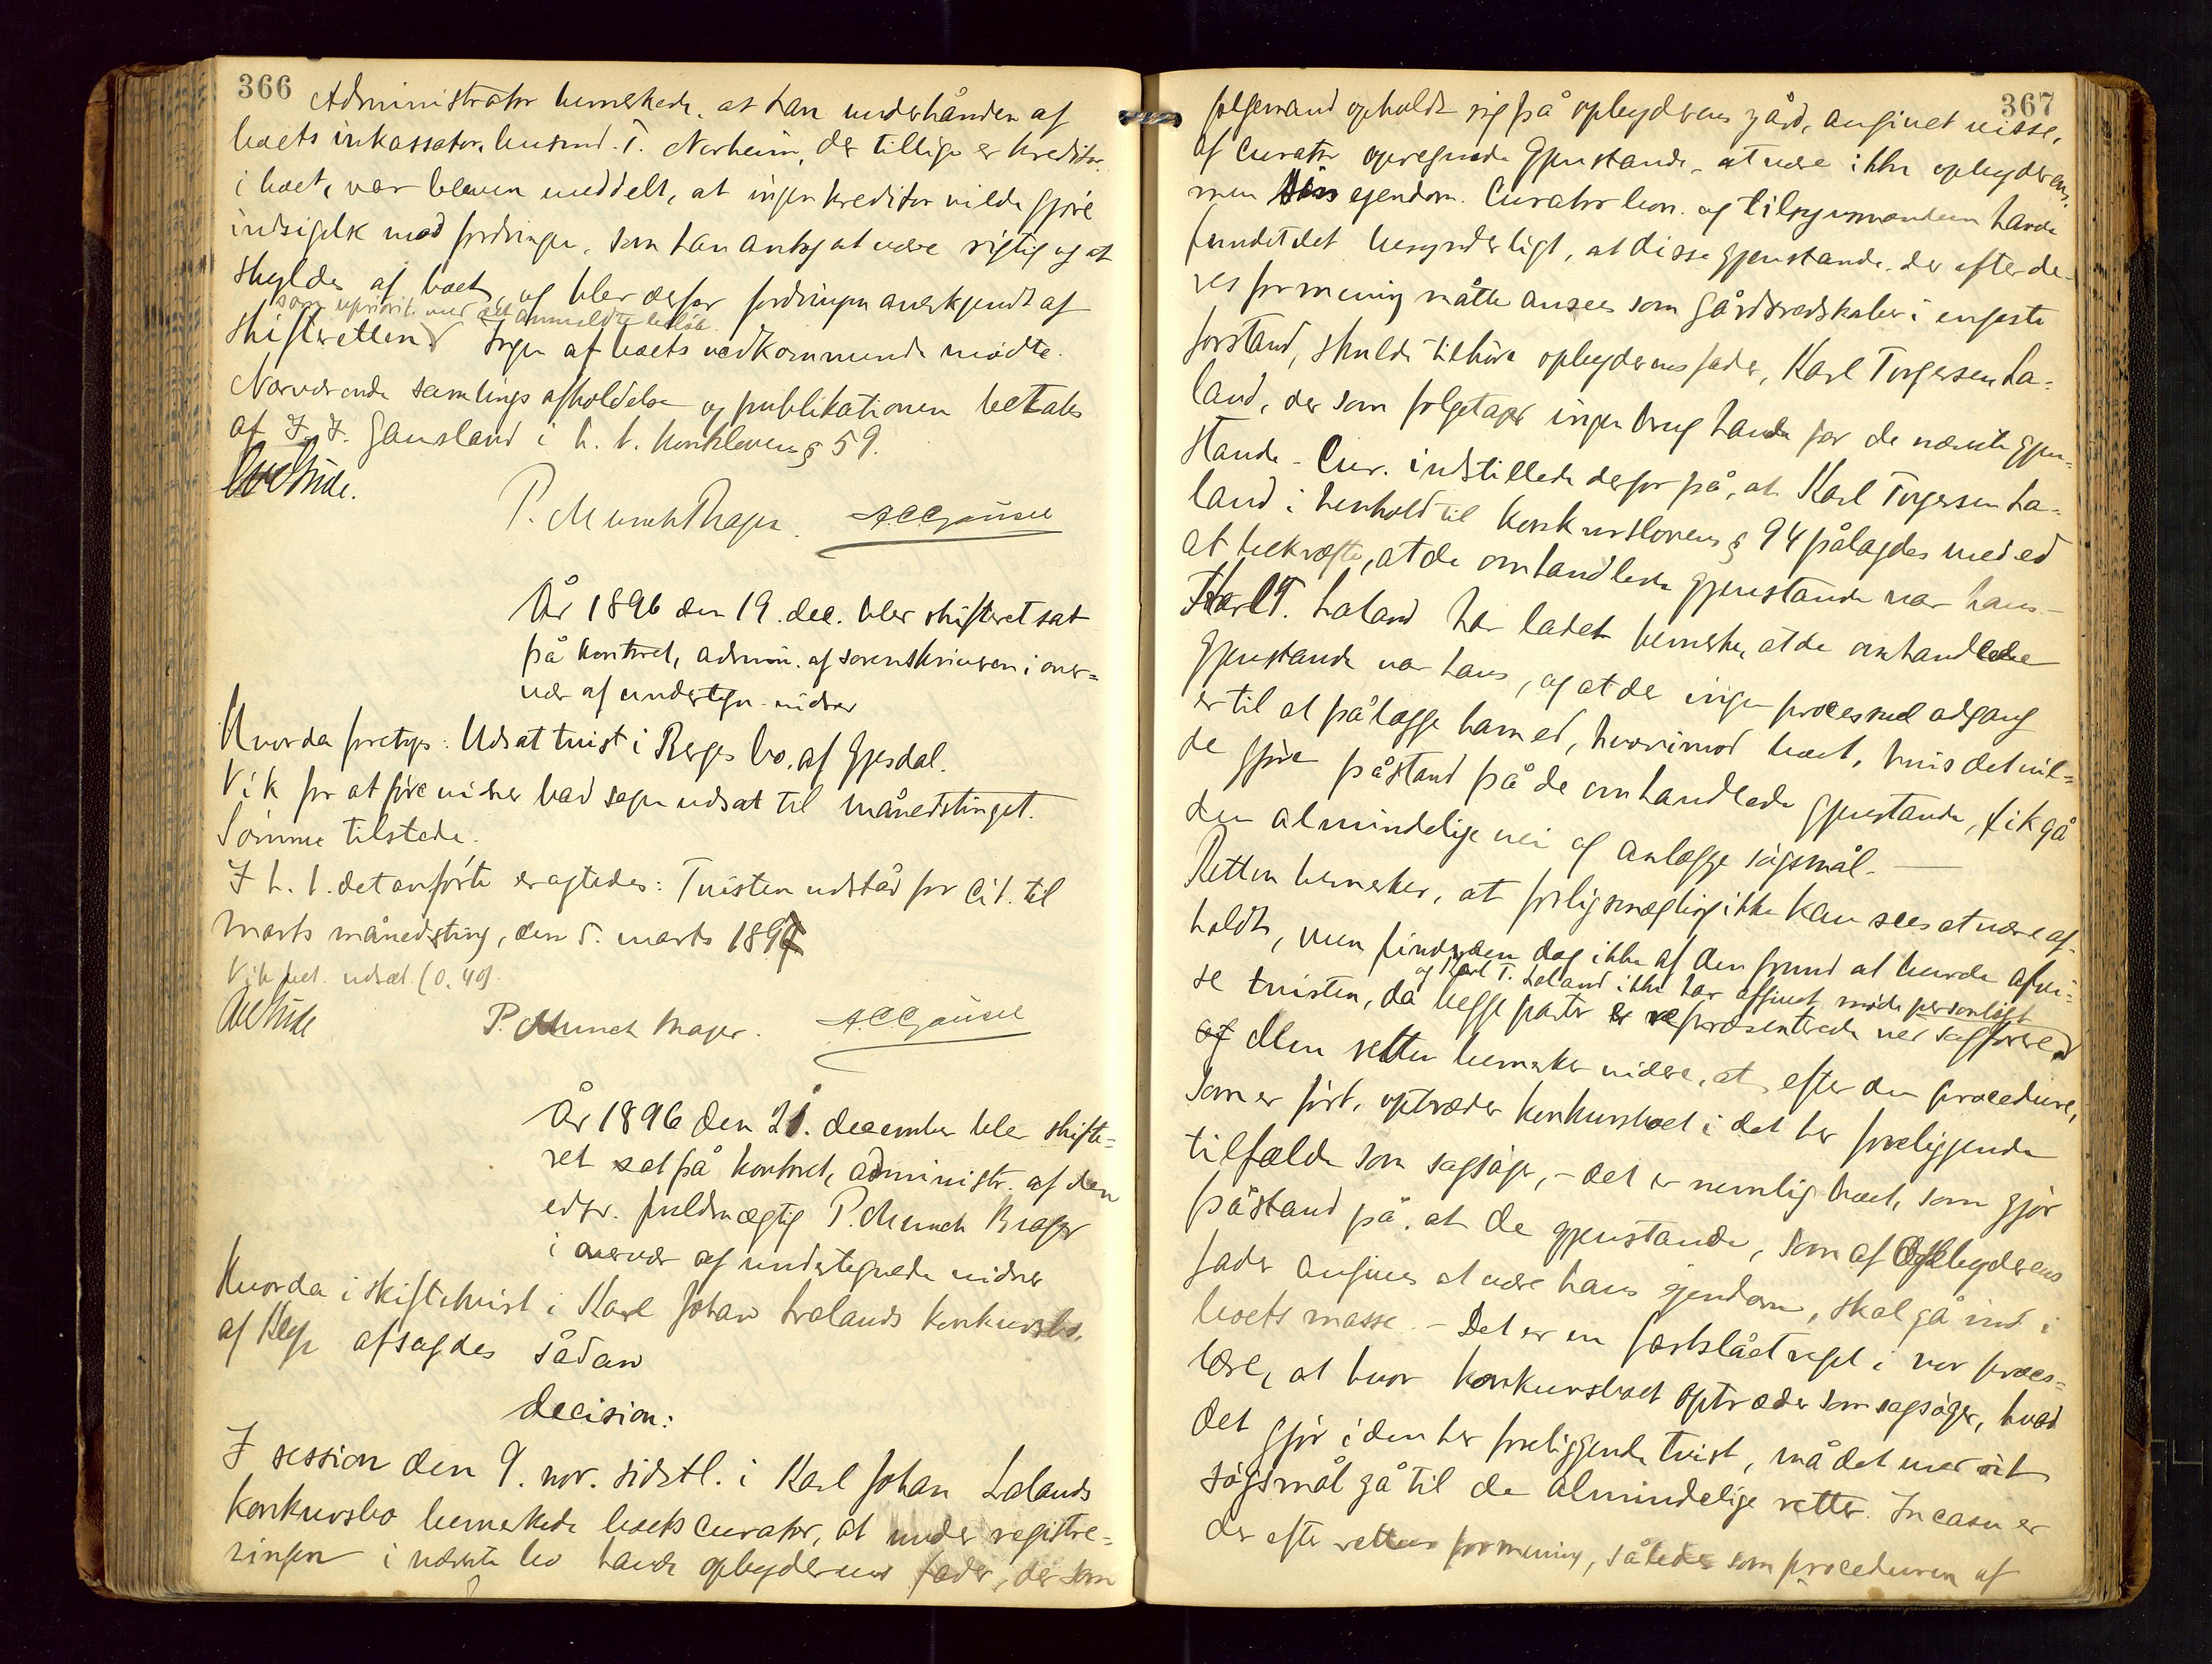 366
Administrator bemerkede, at han underhånden af
boets inkassator, husmd. T. Nerheim, der tillige er kreditor
i boet, var bleven meddelt, at ingen kreditor vilde gjøre
indsigelse mod fordringen, som han antog at være rigtig og at
skyldes af boet, og blev derfor fordringen anerkjendt af
som uprivit. med det anmeldte beløb.
skifteretten. Ingen af boets vedkommende mødte.
Nærværende samlings afholdelse og publikationen betales
af J. J. Gausland i h. t. konkloven § 59.
P. Munch Prager. A. C. Gausel
År 1896 den 19. dec. blev skifteret sat
på kontoret, admin. af sorenskriveren i over=
vær af undertegn. vidner
Hvorda foretoges: Udsat tvist i Berges bo, af Gjesdal.
Vik for at føre vidner bad sagen udsat til månedstinget.
Sömme tilstede.
I h. t. det anførte eragtedes: Tvisten udstår for cit. til
marts månedsting, den 5. marts 1897
Vik bet. udsæt. (0,40).
P. Munch Prager. A. C. Gausel
År 1896 den 21. december blev skifte=
ret sat på kontoret, administr. af den
edsv. fuldmægtig P. Munch Prager
i overvær af undertegnede vidner
Hvorda i skiftetvist i Karl Johan Lalands konkursbo,
af Klep afsagdes sådan
decision:
I session den 9. nov. sidstl. i Karl Johan Lalands
konkursbo bemerkede boets curator, at under registre=
ringen i nævnte bo havde opbyderens fader, der som
367
følgemand opholdt sig på opbyderens gård, angivet visse,
af curator opregnede gjenstande, at være ikke opbyderens,
men sin egendom. Curator bon. og tilsynsmanden havde
fundet det besynderligt, at disse gjenstande, der efter de=
res formening måtte ansees som gårdsredskaber i engeste
forstand, skulde tilhöre opbyderens fader, Karl Torgersen La=
land, der som følgetager ingen brug havde for de nævnte gjen=
stande. Cur. indstillede derfor på, at Karl Torgersen La=
land i henhold til konkurslovens § 94 pålagdes med ed
at bekræfte, at de omhandlede gjenstande var hans.-
Karl T. Laland har ladet bemerke, at de omhandlede
gjenstande var hans, og at der ingen processuel adgang
er til at pålægge ham ed, hvorimod boet, hvis det vil=
de gjøre påstand på de omhandlede gjenstande, fik gå
den almindelige vei og anlægge søgsmål. —
Retten bemerker, at forligsmægling ikke kan sees at være af-
holdt, men finder den dog ikke af den grund at burde afvi=
og Karl T. Laland ikke har afgivet møde personligt
se tvisten, da begge parter er repræsenterede ved sagfører
Men retten bemerker videre, at, efter den procedure,
som er ført, optræder konkursboet i det her foreliggende
tilfælde som sagsøger, - det er nemlig boet, som gjør
påstand på, at de gjenstande, som af opbyderens
fader angives at være hans ejendom, skal gå ind i
boets masse. - Det er en fastslået regel i vor proces=
lære, at hvor konkursboet optræder som sagsøger, hvad
det gjør i den her foreliggende tvist, må det med sit
søgsmål gå til de almindelige retter. In casu er
der efter rettens formening, således som proceduren af